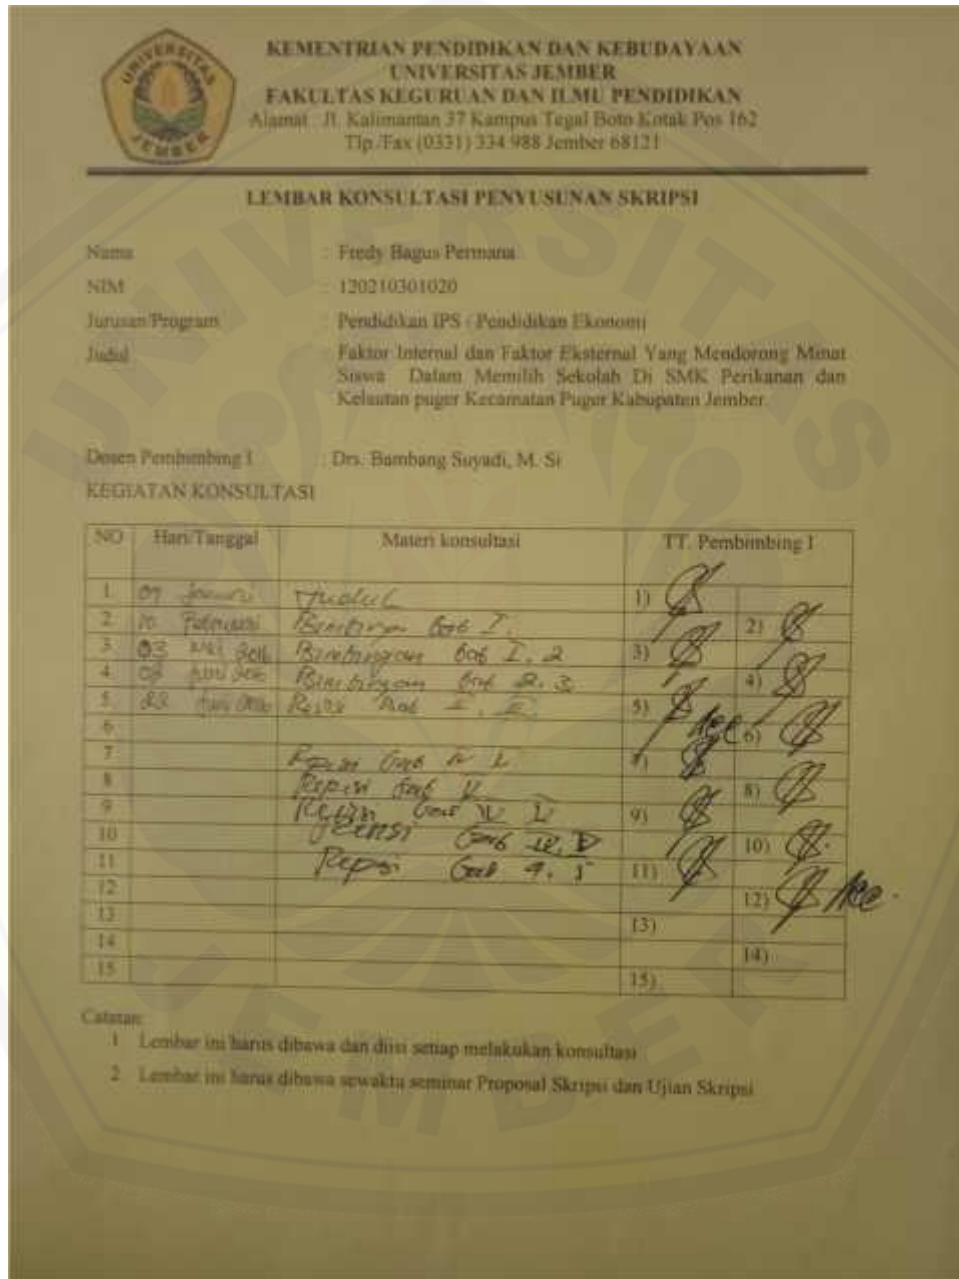 UNIVERSITAS
JEMBER
KEMENTRIAN PENDIDIKAN DAN KEBUDAYAAN
UNIVERSITAS JEMBER
FAKULTAS KEGURUAN DAN ILMU PENDIDIKAN
Alamat : Jl. Kalimantan 37 Kampus Tegal Boto Kotak Pos 162
Tlp./Fax (0331) 334 988 Jember 68121
LEMBAR KONSULTASI PENYUSUNAN SKRIPSI
Nama : Fredy Bagus Permana
NIM : 120210301020
Jurusan/Program : Pendidikan IPS / Pendidikan Ekonomi
Judul : Faktor Internal dan Faktor Eksternal Yang Mendorong Minat
Siswa Dalam Memilih Sekolah Di SMK Perikanan dan
Kelautan puger Kecamatan Puger Kabupaten Jember.
Dosen Pembimbing I : Drs. Bambang Suyadi, M. Si
KEGIATAN KONSULTASI
NO Hari/Tanggal Materi konsultasi TT. Pembimbing I
1. Januari Judul 1)
2. 10 Februari Bimbingan bab I. 2)
3. 03 Mei 2016 Bimbingan bab I. 2 3)
4. Juni 2016 Bimbingan bab 2. 3 4)
5. 22 Juni 2016 5)
Acc 6)
6
7 7)
8 Revisi bab 8)
9 Revisi bab 9)
10 Revisi bab IV. V 10)
11 Revisi bab 4. 5 11)
12 12) Acc.
13 13)
14 14)
15 15)
Catatan:
1 Lembar ini harus dibawa dan diisi setiap melakukan konsultasi
2 Lembar ini harus dibawa sewaktu seminar Proposal Skripsi dan Ujian Skripsi
UNIVERSITAS
JEMBER